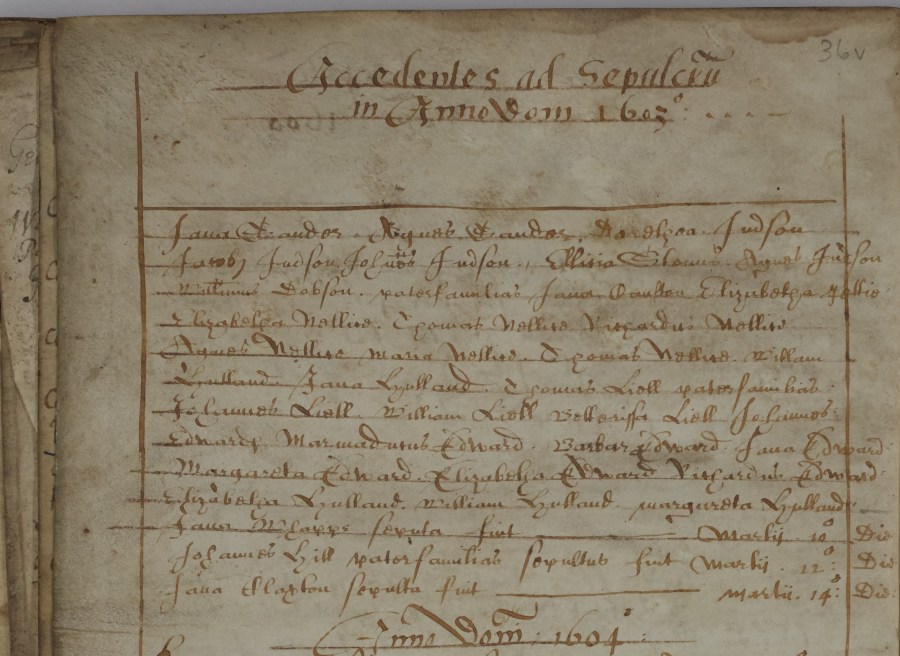 36v
Accedentes ad Sepulcrū
in Anno Dom 1603°
Jana Trander. Agnes Trander. Dorethea. Judson
Jacobj Judson Johnēs Judson. Judson
Willmus Dobson. paterfamilias Jana Elizabetha Nellie
Elizabetha Nellite. Thomas Nellite Richardus Nellite
Agnes Nellite Maria Nellite. Thomas Nellite. William
Hulland. Jana Hulland. Thomas Liell paterfamilias
Johannes Liell. William Liell Liell Johannes
Edward. Marmaducus Edward. Barbar Edward Jana Edward
Margareta Edward. Elizabetha Edward Richardus Edward
Elizabetha Hulland. William Hulland. margareta Hulland
Jana sepulta fuit Martij 10° Die
Johannes Hill paterfamilias sepultus fuit Martij. 12° Die
Jana Claxton sepulta fuit martii. 14° Die
Anno Dom̄ 1604°